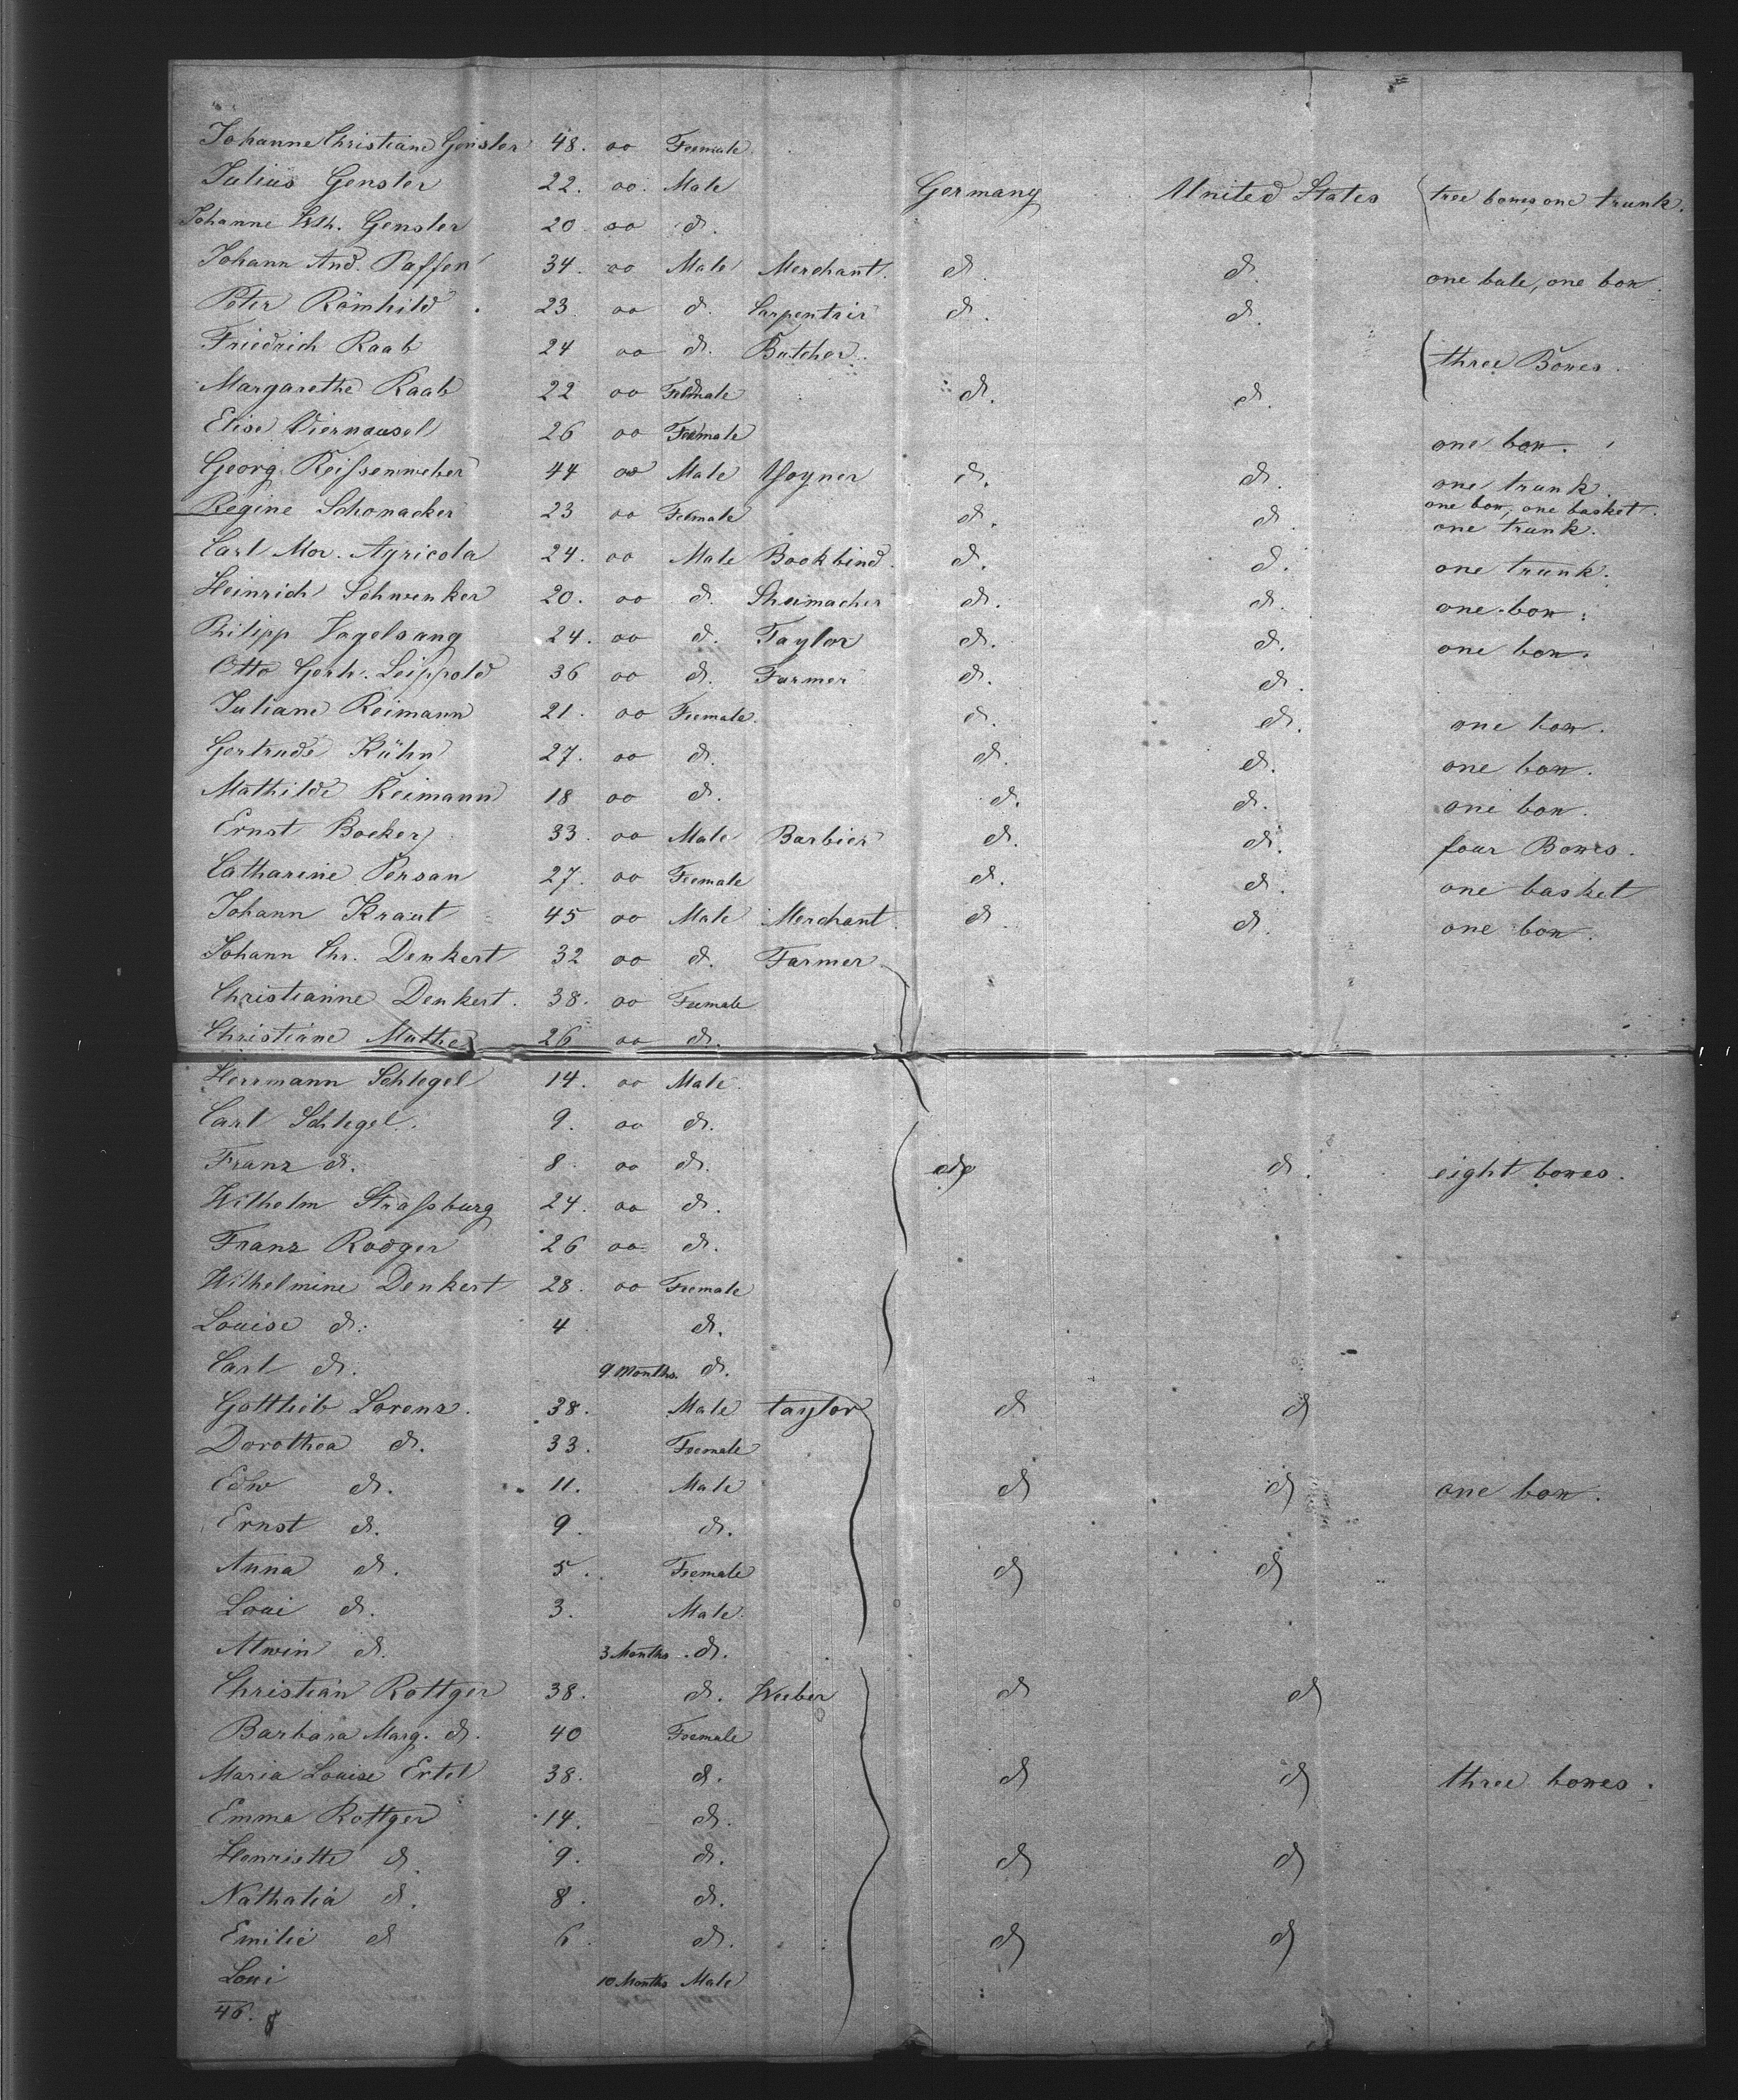 Johanne Christiane Gensler 48. oo Feemale
Julius Gensler 22. oo. Male Germany United States tree boxes one trunk.
Johanne Gensler 20 oo d.
Johann And. Paffen 34. oo Male Merchant. d. d. one bale, one box.
Peter Römhild 23 oo d. Carpentrir d. d.
Friedrich Raab 24 oo d. Butcher. three Boxes.
Margarethe Raab 22 oo Feemale d. d.
Elise Viernousel 26 oo Feemale one box.
Georg Reissenweber 44 oo Male Yoyner d. d. one trunk.
Regine Schonacker 23 oo Feemale d. d. one box, one basket. one trunk.
Carl Mor. Agricola 24. oo Male Bookbind. d. d. one trunk.
Heinrich Schwenker 20. oo d. Shuimacher d. d. one box.
Philipp Vogelsang 24. oo d. Taylor d. d. one box.
Otto Gerh. Leippold 36 oo d. Farmer d. d.
Juliane Reimann 21. oo Feemale. d. d. one box.
Gertrude Kühn 27. oo d. d. d. one box.
Mathilde Reimann 18 oo d. d. d. one box.
Ernst Bocker 33. oo Male Barbier d. d. four Boxes.
Catharine Persan 27. oo Feemale d. d. one basket
Johann Kraut 45 oo Male Merchant. d. d. one box.
Johann Chr. Denkert 32 oo d. Farmer
Christianne Denkert. 38. oo Feemale
Christiane Mathe 26 oo d.
Herrmann Schlegel 14. oo Male
Carl Schlegel. 9. oo d.
Franz d. 8 oo d. do d. eight boxes.
Wilhelm Strassburg 24 oo d.
Franz Rodger 26 oo d.
Wilhelmine Denkert 28. oo Feemale
Louise d. 4 d.
Carl d. 9 Months. d.
Gottlieb Lorenz. 38. Male taylor d d
Dorothea d. 33. Feemale
Edw d. 11. Male d d one box.
Ernst d. 9. d.
Anna d. 5. Feemale d d
Loui d. 3. Male
Alwin d. 3 Months. d.
Christian Rottger 38. d. Weeber d d
Barbara Marg. d. 40 Feemale
Maria Louise Ertel 38. d. d d three boxes.
Emma Rottger 14. d.
Henriette d. 9. d. d d
Nathalia d. 8. d.
Emilie d 6. d. d d
Loui 10 Months Male
46.